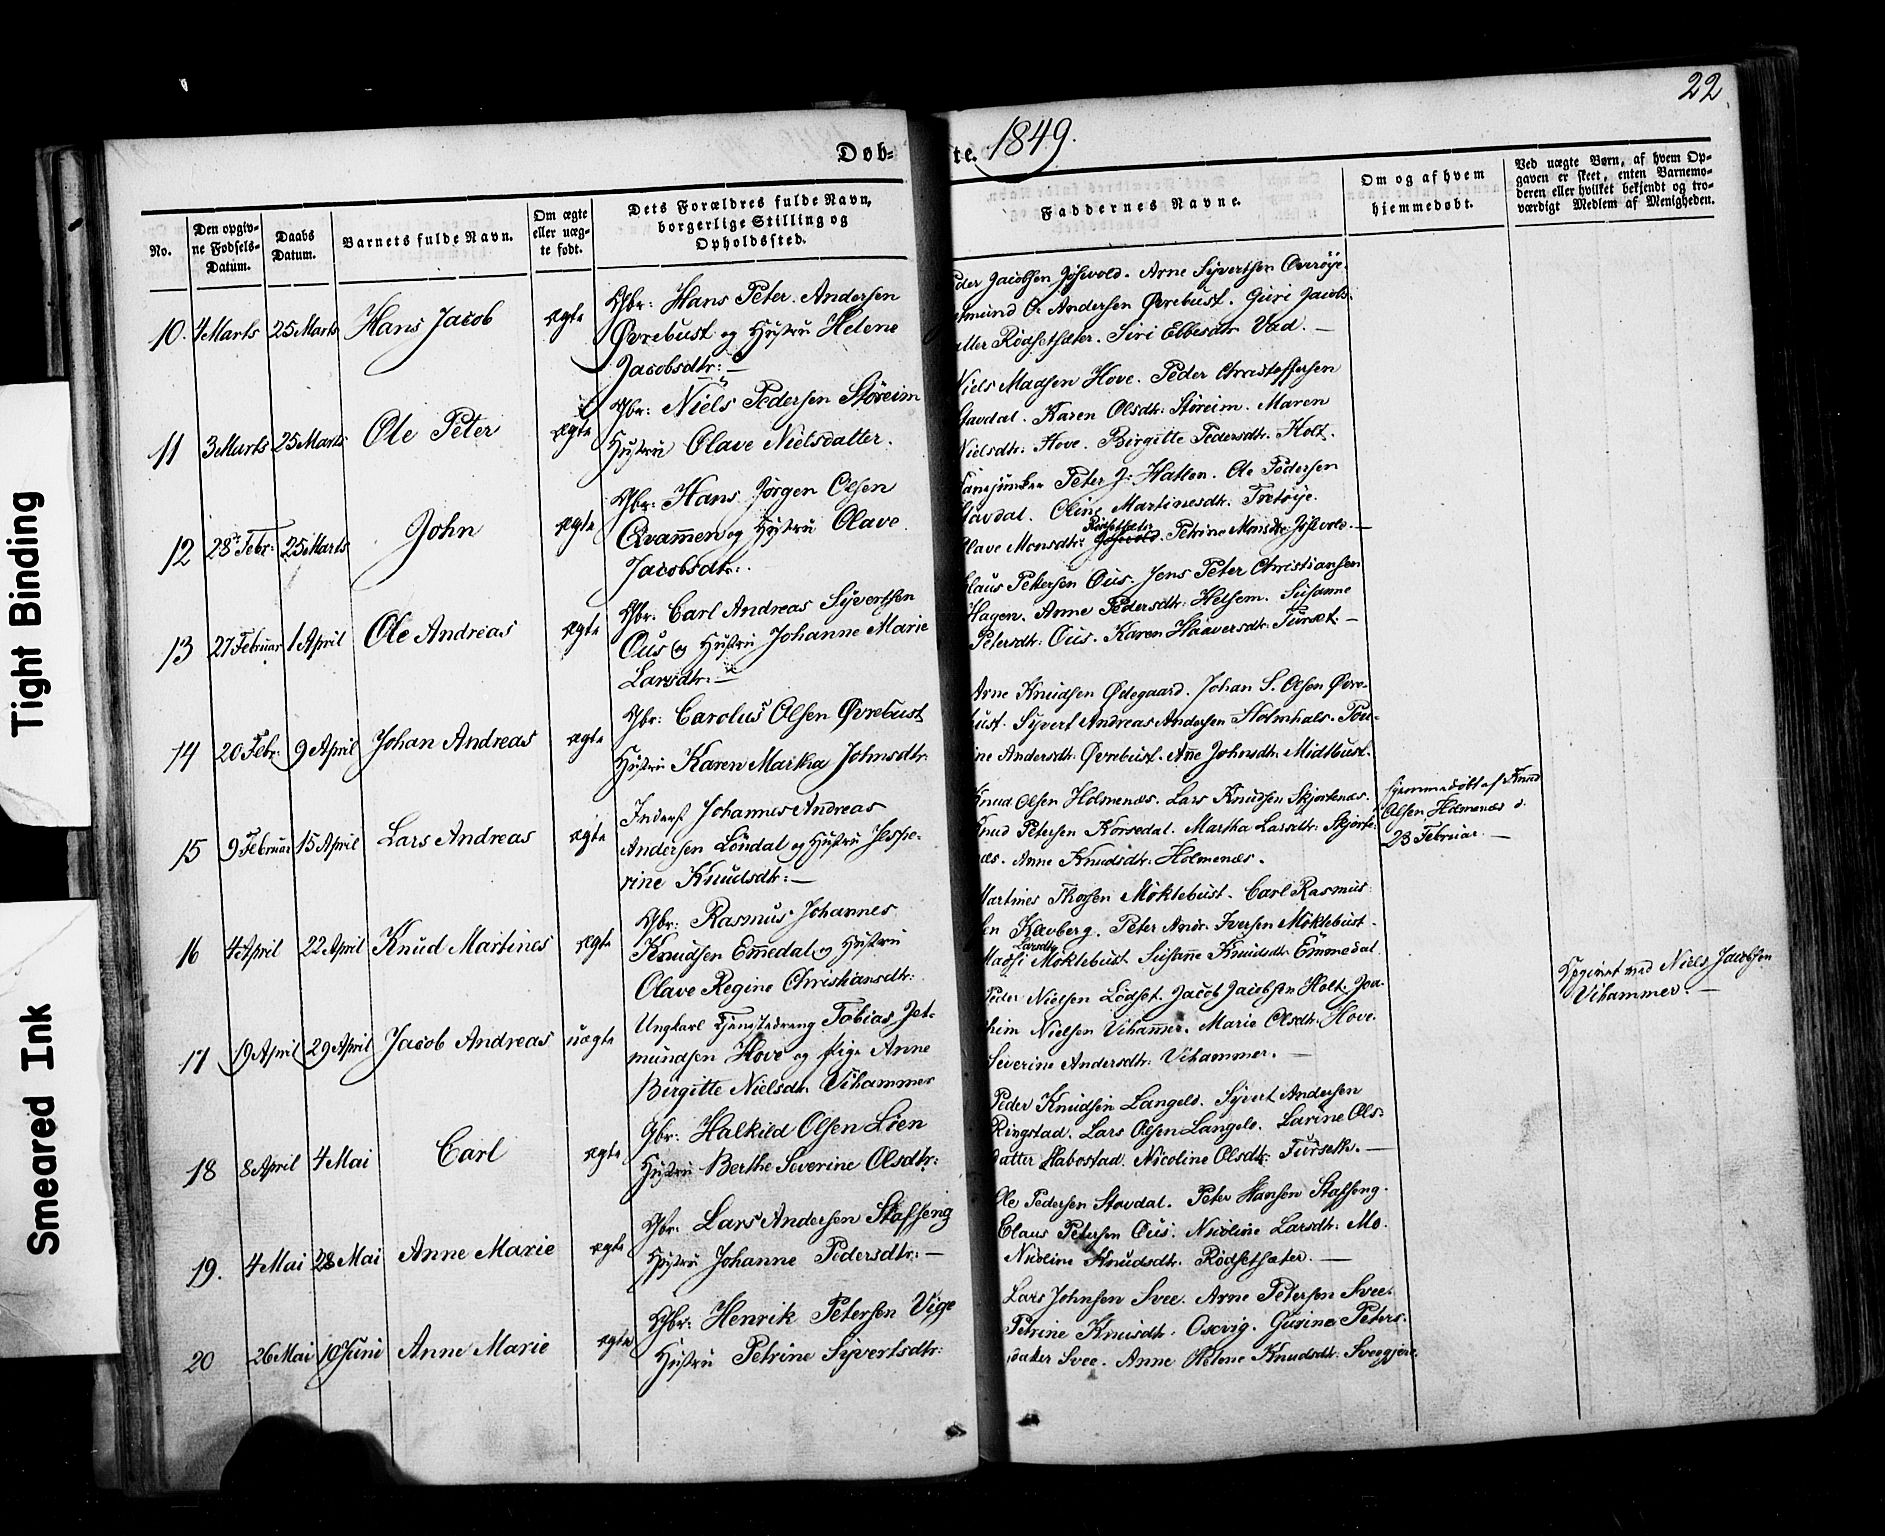 22
Døb-
te. 1849.
No.
Den opgiv-
ne Fødsels-
Datum.
Daabs
Datum.
Barnets fulde Navn.
Om ægte
eller uæg-
te født.
Dets Forældres fulde Navn,
borgerlige Stilling og
Opholdssted.
Faddernes Navne.
Om og af hvem
hjemmedøbt.
Ved uægte Børn, af hvem Op-
gaven er skeet, enten Barnemo-
deren eller hvilket bekjendt og tro-
værdigt Medlem af Menigheden.
10. 4 Marts 25 Marts Hans Jacob ægte
Gbr: Hans Peter Andersen
Øvrebust og Hustru Helene
Jacobsdtr: —
der Jacobsen Jøsevold. Arne Syvertsen Overøye.
mund O. Andersen Øvrebust. Guri Jacobs-
atter Rødsetsæter. Siri Ebbesdtr. Vad. —
11 3 Marts 25 Marts Ole Peter ægte
Gbr: Niels Pedersen Støreim
Hustru Olave Nielsdatter.
Niels Madsen Hove. Peder Christoffersen
Stavdal. Karen Olsdtr: Støreim. Maren
Nielsdtr: Hove. Birgitte Pedersdtr. Holt.
12 28de Febr: 25 Marts John ægte
Gbr: Hans Jørgen Olsen
Qvammen og Hustru Olave
Jacobsdtr:.
Fanejunker Peter J. Hatlen. Ole Pedersen
Stavdal. Oline Martinesdtr. Tretøye.
Rødsetsæter
Olave Monsdtr: Jøsevold. Petrine Monsdtr: Jøsevold. —
13 27 Februar 1 April Ole Andreas ægte
Gbr: Carl Andreas Syvertsen
Ous og Hustru Johanne Marie
Larsdtr: —
Claus Pettersen Ous. Jens Peter Christiansen
Hagen. Anne Pedersdtr: Helsem. Susanne
Petersdtr: Ous. Karen Haaversdtr: Furset. —
14 20 Febr: 9 April Johan Andreas ægte
Gbr: Carolus Olsen Øvrebust
Hustru Karen Marka Johnsdtr.
Arne Knudsen Ødegaard. Johan S. Olsen Øvre-
bust. Syvert Andreas Andersen Holmhals.
ne Andersdtr: Øvrebust. Anne Johnsdtr: Midtbust.
15 9 Februar 15 April Lars Andreas ægte
Inderst Johannes Andreas
Andersen Løndal og Hustru Jespe-
rine Knudsdtr: —
Knud Olsen Holmenæs. Lars Knudsen Skjortenæs.
Knud Petersen Korsedal. Martha Larsdtr: Skjorte-
næs. Anne Knudsdtr: Holmenæs.
Hjemmedøbt af Knud
Olsen Holmenæs d.
23 Februar. —
16 4 April 22 April Knud Martines ægte
Gbr: Rasmus Johannes
Knudsen Emmedal og Hustru
Olave Regine Christiansdtr:
Martines Thorsen Møklebust. Carl Rasmus-
sen Kavberg. Peter Andr. Iversen Møklebust.
Larsdtr
Madsi Møklebust Susanne Knudsdtr. Emmedal.
17 19 April 29 April Jacob Andreas uægte
Ungkarl Tjenestedreng Tobias Jet-
mundsen Hove og Pige Anne
Birgitte Nielsdtr. Vihammer
Peder Nielsen Lødset. Jacob Jacobsen Holt. Joa-
chim Nielsen Vihammer. Marie Olsdtr: Hove.
Severine Andersdtr: Vihammer. —
Opgivet ved Niels Jacobsen
Vihammer. —
18 8 April 4 Mai Carl ægte
Gbr: Halkild Olsen Lien
Hustru Berthe Severine Olsdtr:
Peder Knudsen Langelo. Syvert Andersen
Ringstad. Lars Olsen Langelo. Larine Ols-
datter Habostad. Nicoline Olsdtr: Furseth. —
19. 4 Mai 28 Mai Anne Marie ægte
Gbr: Lars Andersen Stafseng
Hustru Johanne Pedersdtr: —
Ole Pedersen Stavdal. Peter Hansen Stafseng.
Claus Petersen Ous. Nicoline Larsdtr: Mo.
Nicoline Knudsdtr. Rødsetsæter. —
20 26 Mai 10 Juni Anne Marie ægte
Gbr: Henrik Petersen Vige
Hustru Petrine Syvertsdtr:
Lars Johnsen Svee. Arne Petersen Svee.
Petrine Knudsdtr. Oscvig. Gurine Peters-
datter Svee. Anne Helene Knudsdtr:
Tight Binding
Smeared Ink